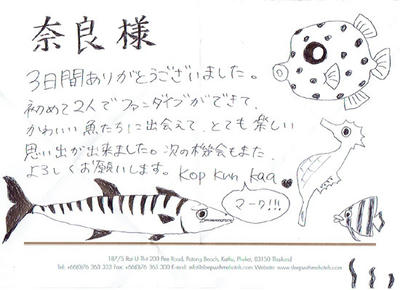 奈良様
3日間ありがとうございました。
初めて2人でファンダイブができて、
かわいい魚たちに出会えて、とても楽しい
思い出が出来ました。次の機会もまた、
よろしくお願いします。Kop Kun Kaa
マーク!!!
Rat U Thit 200 Pee Road, Patong Beach, Kathu, Phuket, 83150 Thailand